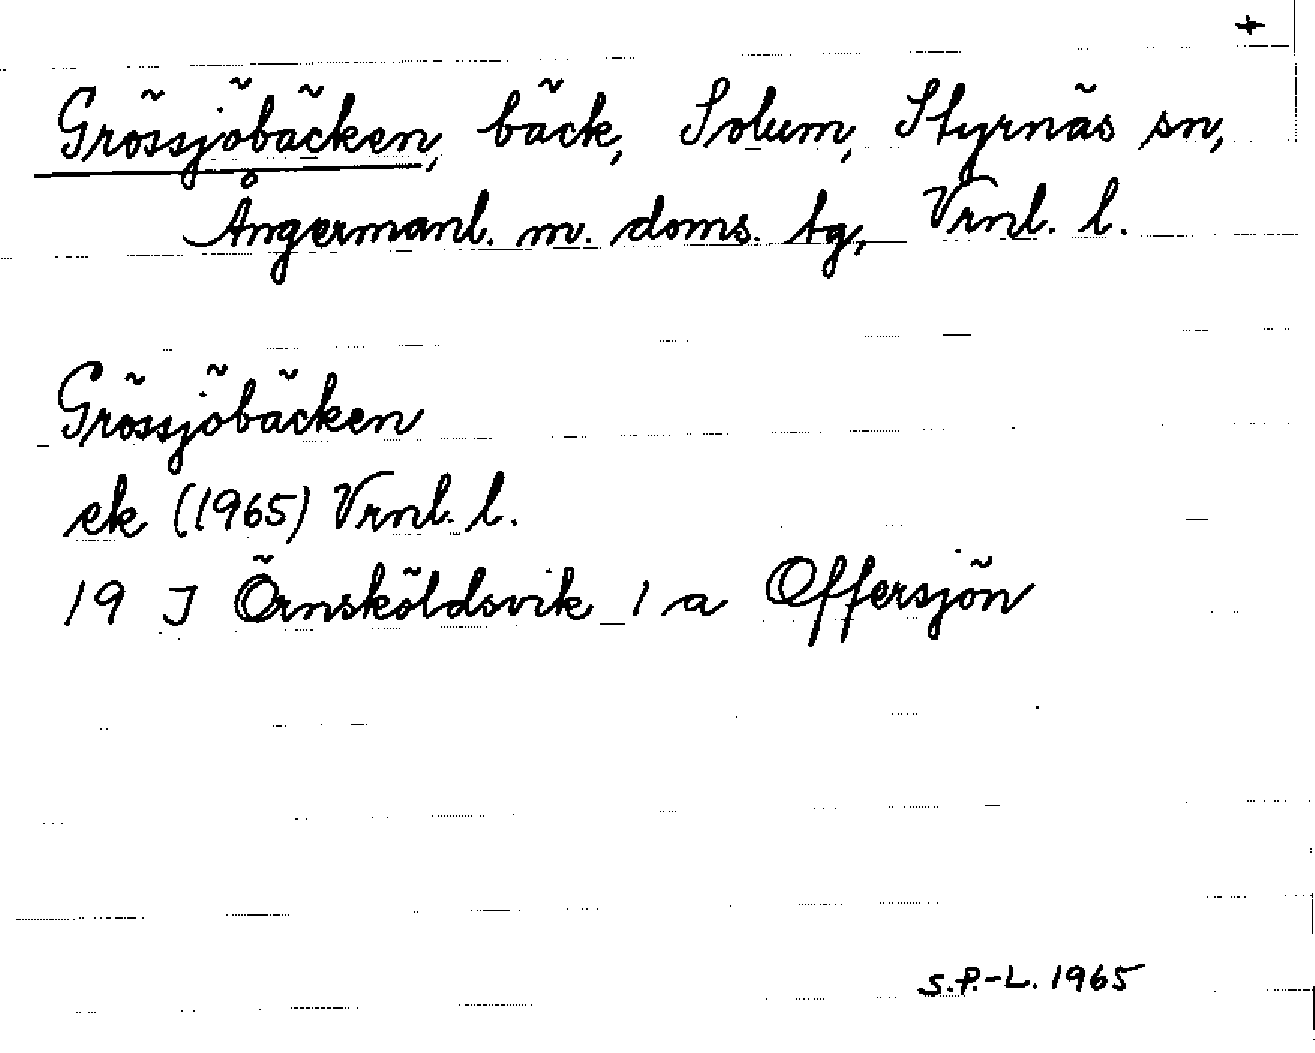 +
Grössjöbäcken, bäck, Solum, Styrnäs sn,
Ångermanl. m. doms. tg, Vrnl. l.
Grössjöbäcken
ek (1965) Vrnl. l.
19 J Örnsköldsvik 1 a Offersjön
S.P.-L. 1965